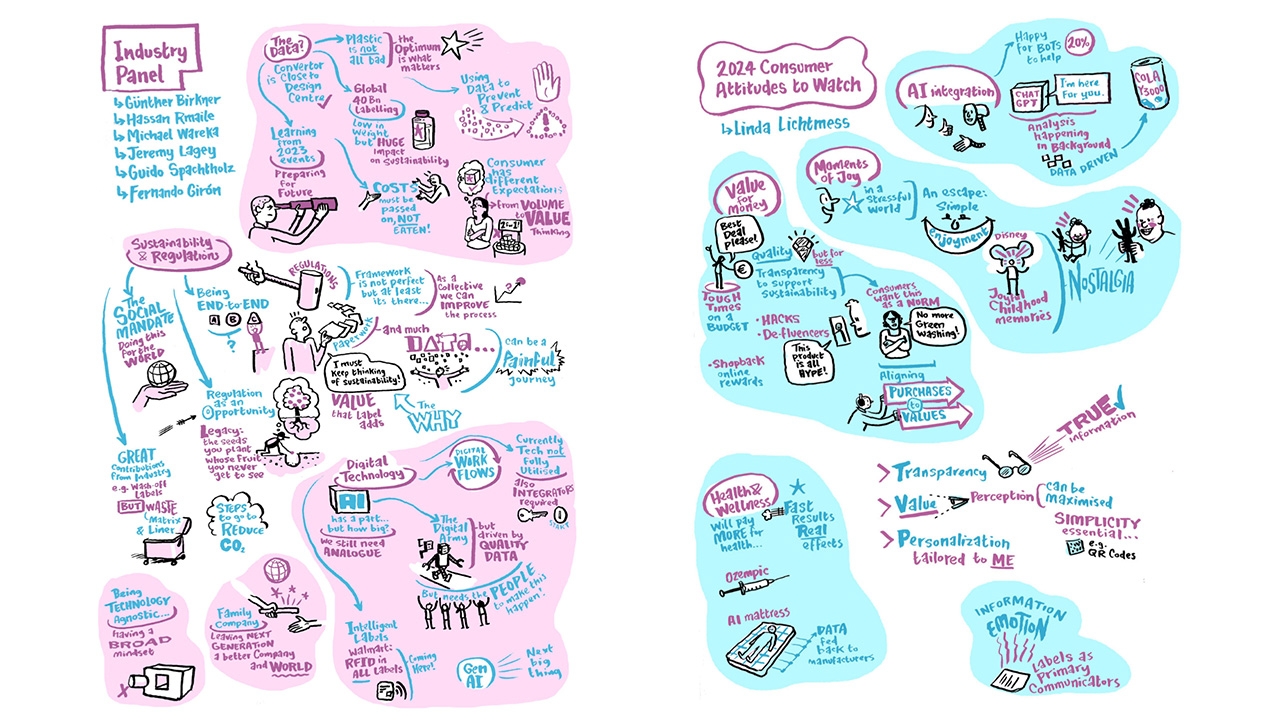 Industry
Panel
Günther Birkner
Hassan Rmaile
Michael Wareka
Jeremy Lagey
Guido Spachtholz
Fernando Girón
The
Data?
Convertor
is close to
Design
Centre
Plastic
is not
all bad
the
Optimum
is what
matters
Global
40Bn
Labelling
Low in
Weight
but HUGE
impact
on Sustainability
Using
Data to
Prevent
& Predict
Learning
from
2023
events
Preparing
for
Future
COSTS
must be
passed
on, NOT
EATEN!
Consumer
has
different
Expectations
from VOLUME
to VALUE
Thinking
Sustainability
& Regulations
The
SOCIAL
MANDATE
Doing this
for the
WORLD
Being
END-to-END
A B C
?
REGULATIONS
Framework
is not perfect
but at least
its there...
As a
Collective
we can
IMPROVE
the process
Paperwork
and much
DATA...
can be a
Painful
journey
I must
Keep thinking
of sustainability!
VALUE
that Label
adds
The
WHY
Regulation
as an
Opportunity
Legacy:
the seeds
you plant
whose Fruit
you never
get to see
GREAT
contributions
from Industry
e.g. Wash-off
Labels
BUT WASTE
Matrix
& Liner
STEPS
to go to
REDUCE
CO₂
Being
TECHNOLOGY
Agnostic...
having a
BROAD
mindset
Family
Company
Leaving NEXT
GENERATION
a better Company
and WORLD
Digital
Technology
DIGITAL
WORK
FLOWS
Currently
Tech not
Fully
Utilised
also
INTEGRATORS
required
START
AI
has a part...
but how big?
we still need
ANALOGUE
The
Digital
Army
but
driven by
QUALITY
DATA
But needs the PEOPLE
to make this
happen!
Intelligent
Labels
Walmart:
RFID in
ALL Labels
Coming
Here!
Gen
AI
Next
big
thing
2024 Consumer
Attitudes to Watch
Linda Lichtmess
AI integration
Happy
for BOTs
to help
20%
CHAT
GPT
I'm here
For you.
COLA
Y3000
Analysis
happening
in Background
DATA DRIVEN
Moments
of Joy
in a
stressful
world
An escape:
Simple
enjoyment
Disney
Joyful
Childhood
memories
NOSTALGIA
Value
for
Money
Best
Deal
please!
€
TOUGH
TIMES
on a
BUDGET
Quality
but for
less
Transparency
to support
Sustainability
HACKS
De-fluencers
Shopback
online
rewards
This
product
is all
HYPE!
Consumers
want this
as a NORM
No more
Green
washing!
Aligning
PURCHASES
to
VALUES
Health &
Wellness
Will pay
MORE for
health...
Fast
Results
Real
effects
Ozempic
AI mattress
DATA
fed
back to
manufacturers
TRUE
information
Transparency
Value
Perception
can be
Maximised
Personalization
tailored to ME
SIMPLICITY
essential...
e.g.
QR Codes
INFORMATION
EMOTION
Labels as
Primary
Communicators